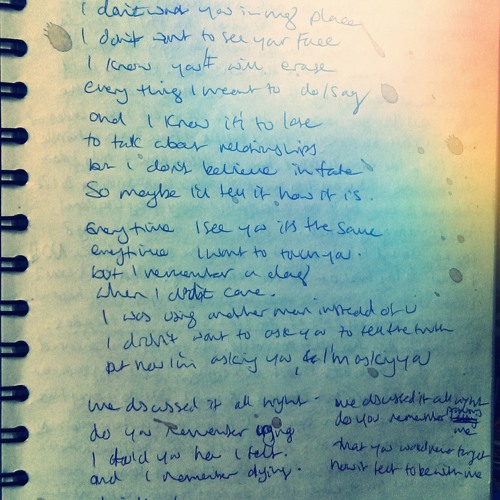 I don't want you in my place
I don't want to see your face
I know you'll will erase
everything I meant to do/say
and I know it's to late
to talk about relationships
but I don't believe in fate
So maybe I'll tell it how it is.
Everytime I see you it's the same
everytime I want to touch you.
but I remember a day
when I didn't care.
I was using another man instead of U
I didn't want to ask you to tell the truth
but now I'm asking you, I'm asking you
we discussed it all night.
do you remember
I told you how I felt.
and I remember dying.
we discussed it all night
do you remember
me
that you would never forget
how it felt to be with me